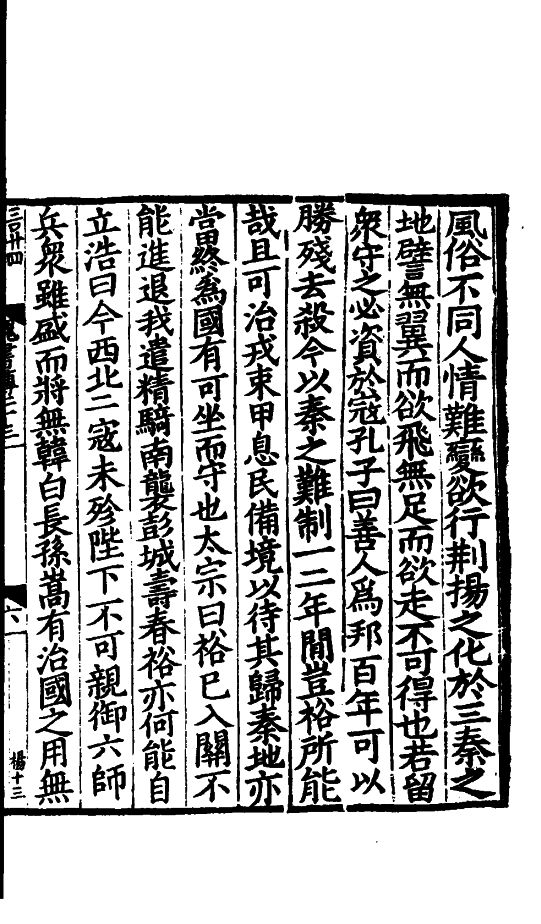 風俗不同人情難變欲行荆揚之化於三秦之
地譬無翼而欲飛無足而欲走不可得也若留
衆守之必資於寇孔子曰善人爲邦百年可以
勝殘去殺今以秦之難制一二年間豈裕所能
哉且可治戎束甲息民備境以待其歸秦地亦
當終爲國有可坐而守也太宗曰裕已入關不
能進退我遣精騎南襲彭城壽春裕亦何能自
立浩曰今西北二寇未殄陛下不可親御六師
兵衆雖盛而將無韓白長孫嵩有治國之用無
六
楊十三